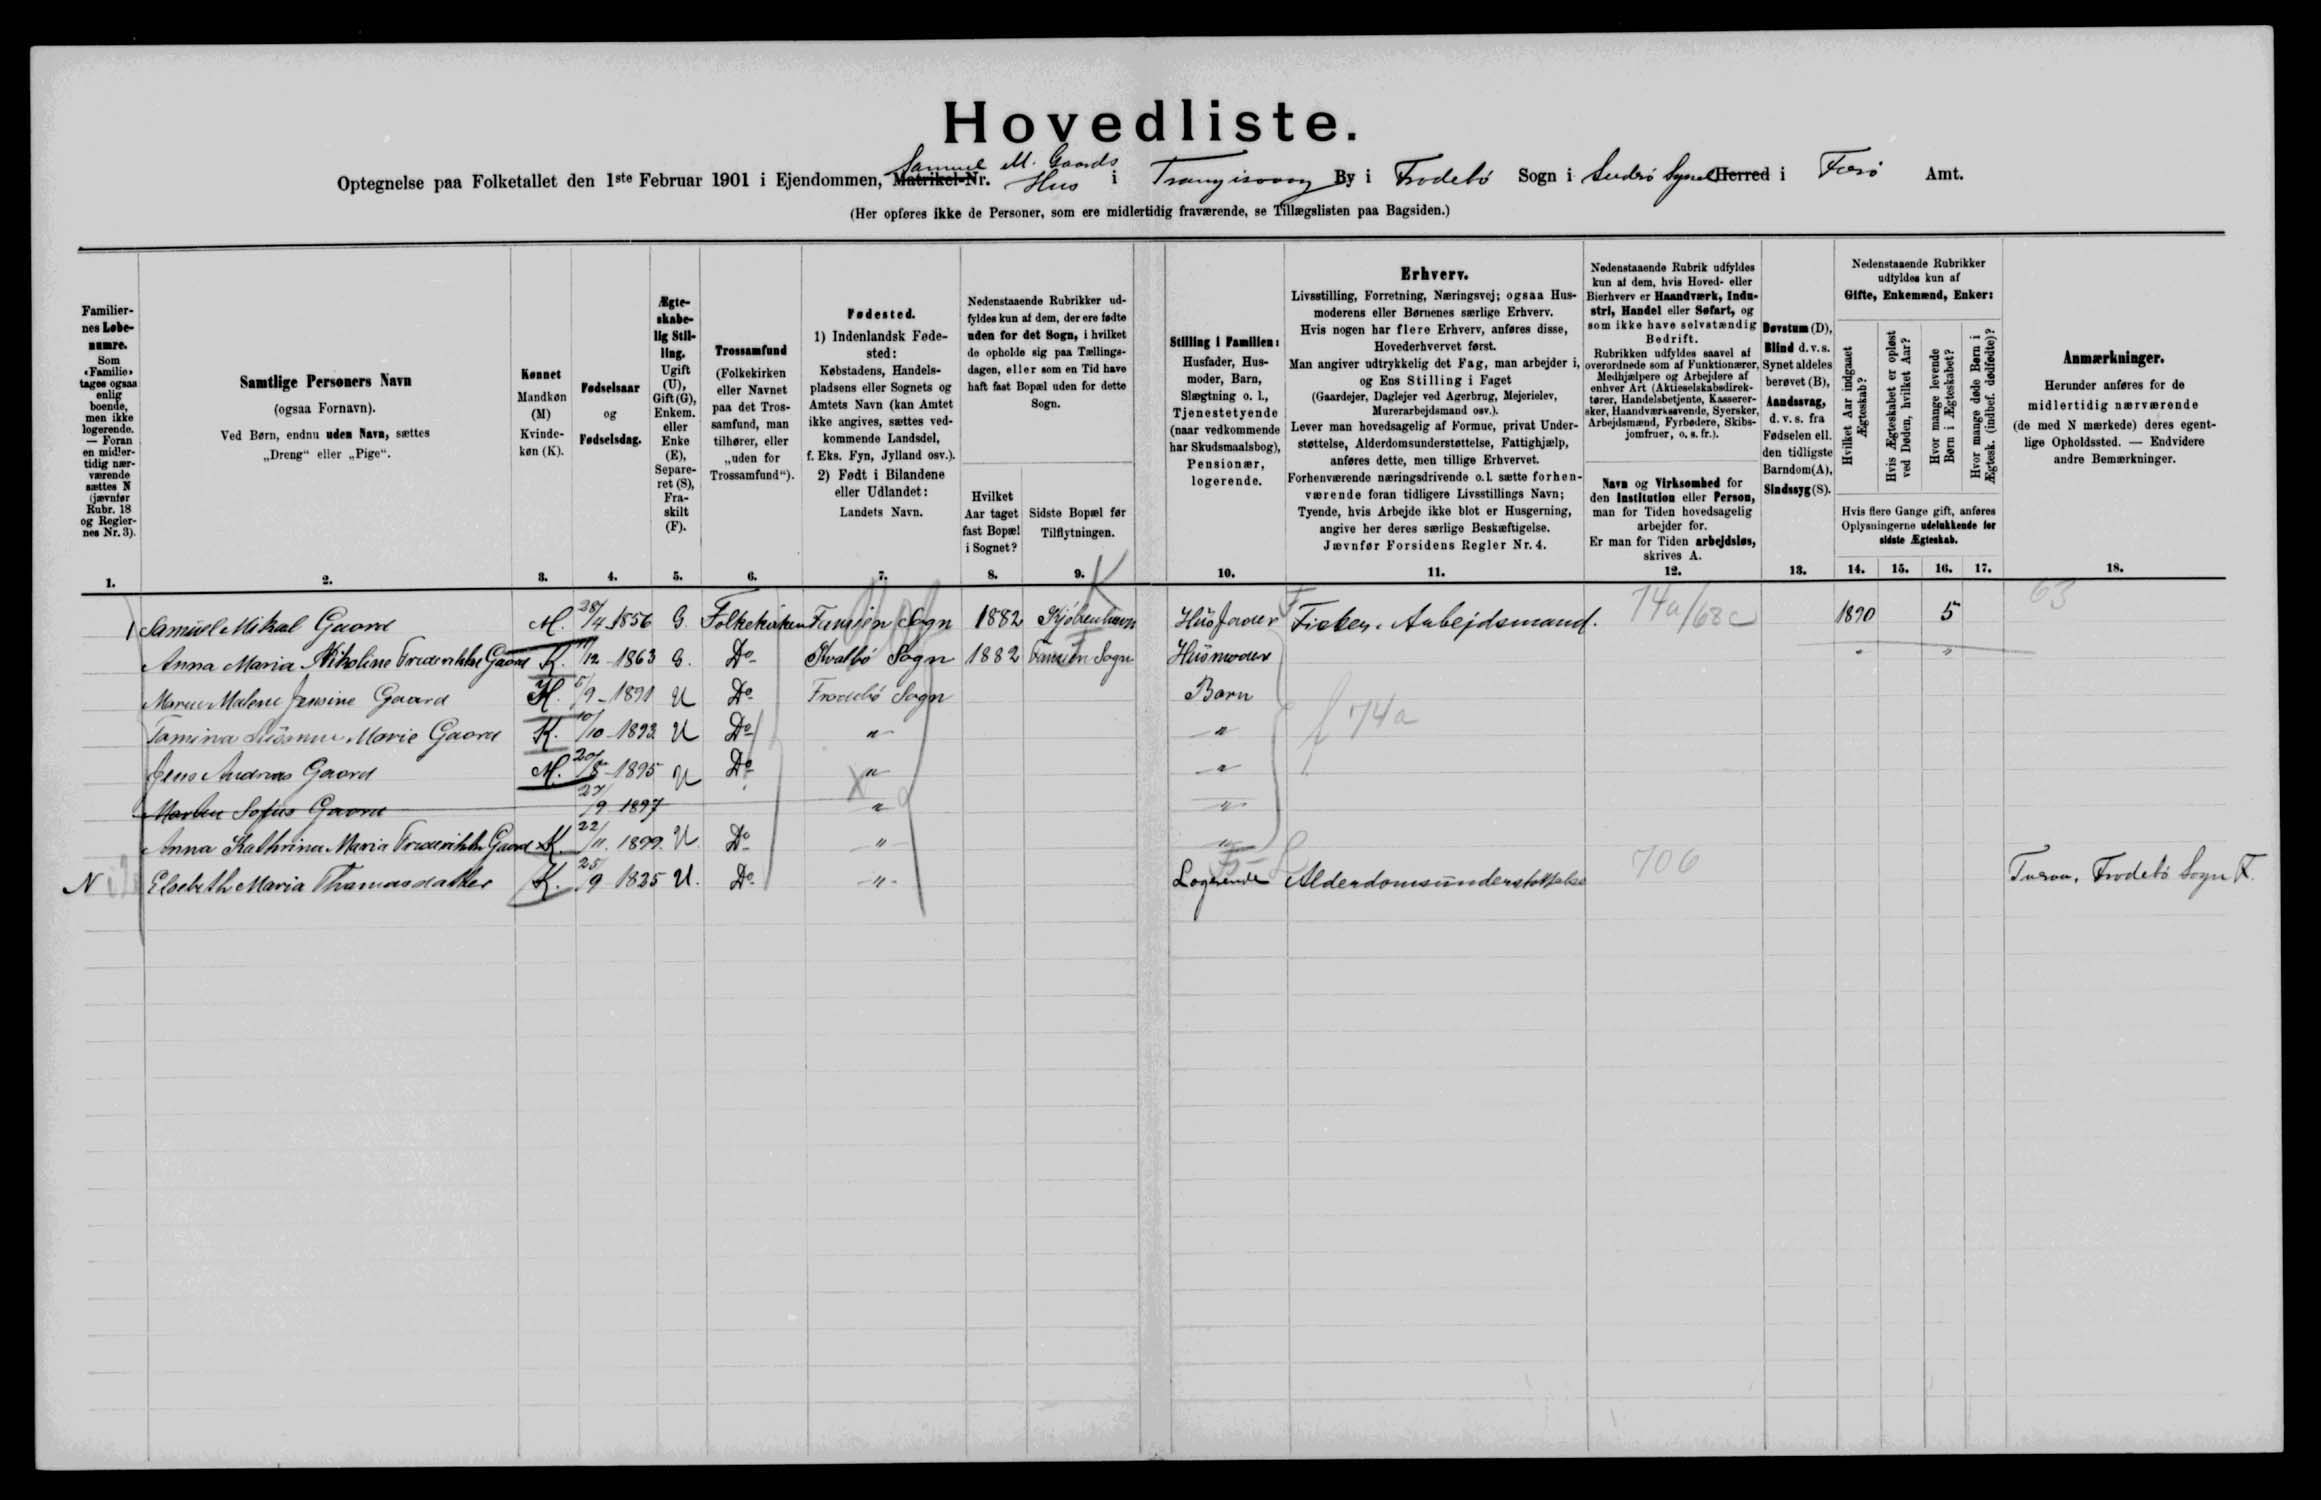 Hovedliste.
Optegnelse paa Folketallet den 1ste Februar 1901 i Ejendommen, Matrikel-Nr. Samuel M. Gaards Hus i Trangisvaag By i Frodebö Sogn i Suderö Syssel Herred i Færö Amt.
(Her opføres ikke de Personer, som ere midlertidig fraværende, se Tillægslisten paa Bagsiden.)
Familiernes Løbenumre.
Som «Familie» tages ogsaa enlig boende, men ikke logerende. — Foran en midlertidig nærværende sættes N (jævnfør Rubr. 18 og Reglernes Nr. 3).
1.
Samtlige Personers Navn
(ogsaa Fornavn).
Ved Børn, endnu uden Navn, sættes
„Dreng“ eller „Pige“.
2.
Kønnet
Mandkøn (M)
Kvindekøn (K).
3.
Fødselsaar
og
Fødselsdag.
4.
Ægteskabelig Stilling.
Ugift (U), Gift (G), Enkem. eller Enke (E), Separeret (S), Fraskilt (F).
5.
Trossamfund
(Folkekirken eller Navnet paa det Trossamfund, man tilhører, eller „uden for Trossamfund“).
6.
Fødested.
1) Indenlandsk Fødested:
Købstadens, Handelspladsens eller Sognets og Amtets Navn (kan Amtet ikke angives, sættes vedkommende Landsdel, f. Eks. Fyn, Jylland osv.).
2) Født i Bilandene eller Udlandet:
Landets Navn.
7.
Nedenstaaende Rubrikker udfyldes kun af dem, der ere fødte uden for det Sogn, i hvilket de opholde sig paa Tællingsdagen, eller som en Tid have haft fast Bopæl uden for dette Sogn.
Hvilket Aar taget fast Bopæl i Sognet?
8.
Sidste Bopæl før Tilflytningen.
9.
Stilling i Familien:
Husfader, Husmoder, Barn, Slægtning o. l., Tjenestetyende (naar vedkommende har Skudsmaalsbog), Pensionær, logerende.
10.
Erhverv.
Livsstilling, Forretning, Næringsvej; ogsaa Husmoderens eller Børnenes særlige Erhverv.
Hvis nogen har flere Erhverv, anføres disse, Hovederhvervet først.
Man angiver udtrykkelig det Fag, man arbejder i, og Ens Stilling i Faget
(Gaardejer, Daglejer ved Agerbrug, Mejerielev, Murerarbejdsmand osv.).
Lever man hovedsagelig af Formue, privat Understøttelse, Alderdomsunderstøttelse, Fattighjælp, anføres dette, men tillige Erhvervet.
Forhenværende næringsdrivende o. l. sætte forhenværende foran tidligere Livsstillings Navn;
Tyende, hvis Arbejde ikke blot er Husgerning, angive her deres særlige Beskæftigelse.
Jævnfør Forsidens Regler Nr. 4.
11.
Nedenstaaende Rubrik udfyldes kun af dem, hvis Hoved- eller Bierhverv er Haandværk, Industri, Handel eller Søfart, og som ikke have selvstændig Bedrift.
Rubrikken udfyldes saavel af overordnede som af Funktionærer, Medhjælpere og Arbejdere af enhver Art (Aktieselskabsdirektører, Handelsbetjente, Kasserersker, Haandværkssvende, Syersker, Arbejdsmænd, Fyrbødere, Skibsjomfruer, o. s. fr.).
Navn og Virksomhed for den Institution eller Person, man for Tiden hovedsagelig arbejder for.
Er man for Tiden arbejdsløs, skrives A.
12.
Døvstum (D), Blind d. v. s. Synet aldeles berøvet (B), Aandssvag, d. v. s. fra Fødselen ell. den tidligste Barndom (A), Sindssyg (S).
13.
Nedenstaaende Rubrikker udfyldes kun af
Gifte, Enkemænd, Enker:
Hvilket Aar indgaaet Ægteskab?
Hvis Ægteskabet er opløst ved Døden, hvilket Aar?
Hvor mange levende Børn i Ægteskabet?
Hvor mange døde Børn i Ægtesk. (indbef. dødfødte)?
Hvis flere Gange gift, anføres Oplysningerne udelukkende for sidste Ægteskab.
14. 15. 16. 17.
Anmærkninger.
Herunder anføres for de midlertidig nærværende (de med N mærkede) deres egentlige Opholdssted. — Endvidere andre Bemærkninger.
18.
1 Samuel Mikal Gaard M. 28/4 1856 G. Folkekirken Famien Sogn 1882 Kjöbenhavn K Husfader Fisker. Arbejdsmand. 74a/68c 1890 5 63
Anna Maria Nikoline Frederikke Gaard K. 11/12 1863 G. Do Kvalbö Sogn 1882 Famien Sogn Husmoder " "
Malene Jensine Gaard K. 5/9 1891 U Do Frodebö Sogn Barn
Tomina Susanne Marie Gaard K. 10/10 1893 U Do " " f 74a
Jens Andreas Gaard M. 20/8 1895 U Do " "
Sofus Gaard 27/9 1897 " "
Anna Kathrina Maria Frederikke Gaard K. 22/11 1899. U. Do " "
N Elsebeth Maria Thomasdatter K. 25/9 1835 U. Do " Logerende Alderdomsunderstøttelse 706 Tveraa, Frodebö Sogn F.